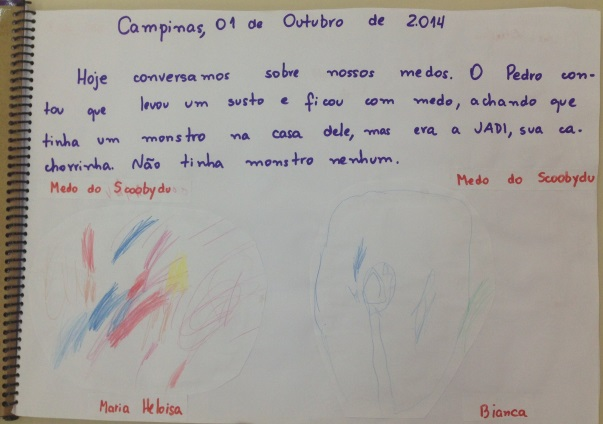 Campinas, 01 de Outubro de 2014
Hoje conversamos sobre nossos medos. O Pedro con-
tou que levou um susto e ficou com medo, achando que
tinha um monstro na casa dele, mas era a JADI, sua ca-
chorrinha. Não tinha monstro nenhum.
Medo do Scoobydu
Medo do Scoobydu
Maria Heloisa
Bianca